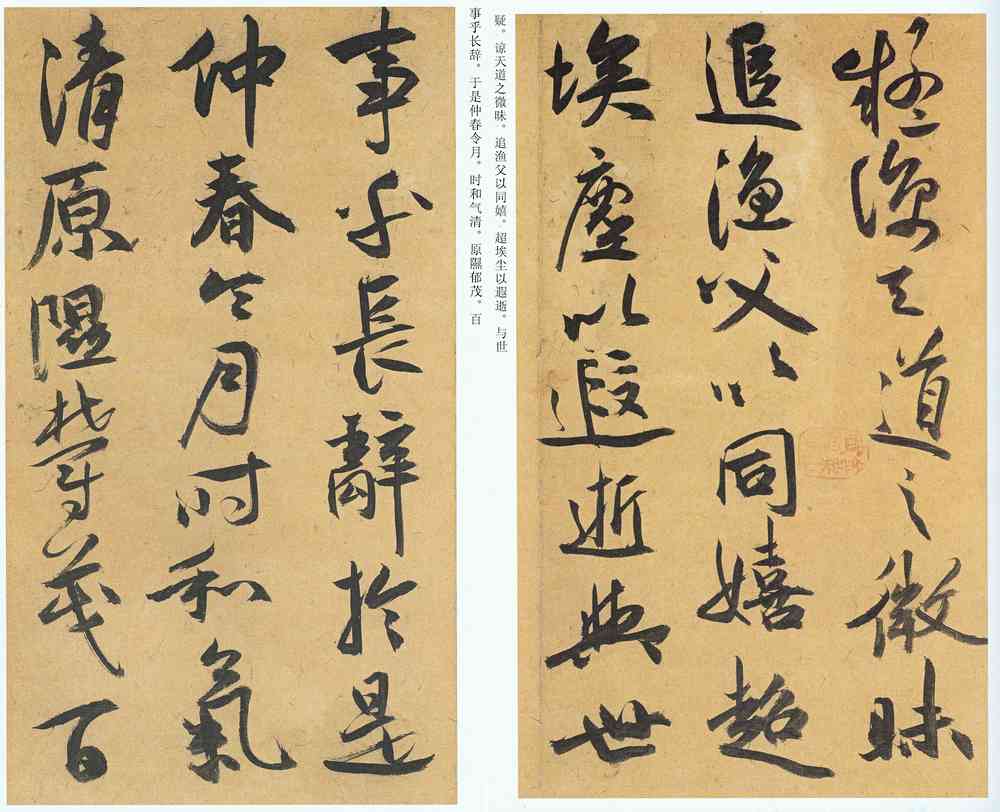 疑諒天道之微昧
追漁父以同嬉超
埃塵以遐逝與世
疑。谅天道之微昧。追渔父以同嬉。超埃尘以遐逝。与世
事乎长辞。于是仲春令月。时和气清。原隰郁茂。百
事乎長辭於是
仲春令月時和氣
清原隰鬱茂百